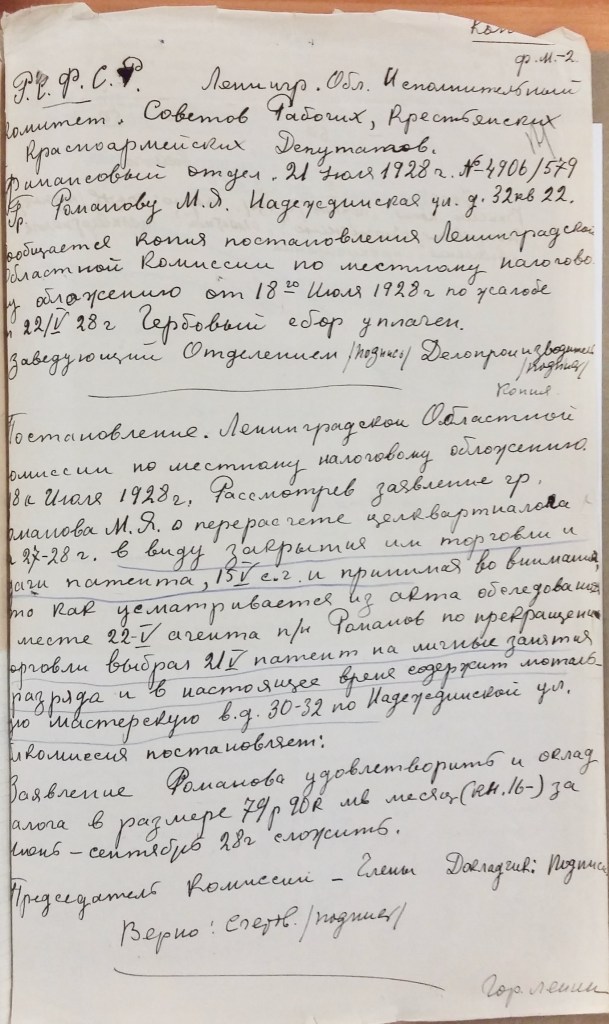 Коп
ф.м.-2.
Р.С.Ф.С.Р. Ленингр. Обл. Исполнительный
комитет. Советов Рабочих, Крестьянских
Красноармейских Депутатов.
Финансовый отдел. 21 Июля 1928 г. № 4906/579
Гр. Романову М.Я. Надеждинская ул. д. 32 кв 22.
ообщается копия постановления Ленинградской
Областной Комиссии по местному налогово
у обложению от 18го Июля 1928 г по жалобе
22/V 28 г Гербовый сбор уплачен.
Заведующий Отделением /подпись/ Делопроизводитель
/подпись/
Копия.
Постановление. Ленинградской Областной
омиссии по местному налоговому обложению
18 Июля 1928 г. Рассмотрев заявление гр.
оманова М.Я. о перерасчете целквартналога
27-28 г. в виду закрытия им торговли и
дачи патента, 15/V с.г. и принимая во внимание,
то как усматривается из акта обследования
месте 22-V агента п/н Романов по прекращении
орговли выбрал 21/V патент на личные занятия
разряда и в настоящее время содержит моталь-
ую мастерскую в.д. 30-32 по Надеждинской ул.
комиссия постановляет:
Заявление Романова удовлетворить и оклад
алога в размере 79 р 90 к мв месяц (кн. 16-) за
Июнь – сентябрь 28 г сложить.
Председатель Комиссии – Члены Докладчик: Подпись
Верно: Счетов. /подпись/
Гор. Ленин